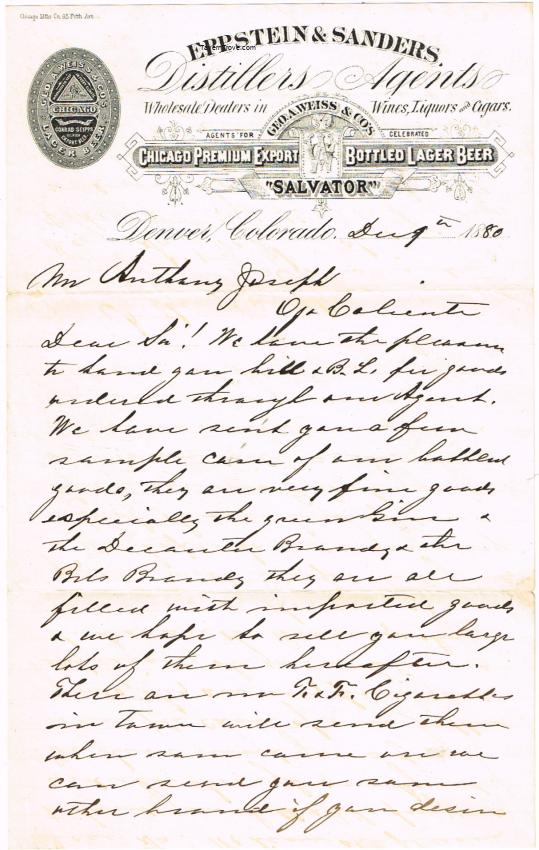 Chicago Litho Co. 95 Fifth Ave.
TavernTrove.com
EPPSTEIN & SANDERS,
Distillers Agents
Wholesale Dealers in Wines, Liquors and Cigars.
GEO. A. WEISS & CO'S
CHICAGO
CONRAD SEIPP'S
EXPORT BEER
LAGER BEER
AGENTS FOR GEO. A. WEISS & CO'S CELEBRATED
CHICAGO PREMIUM EXPORT BOTTLED LAGER BEER
"SALVATOR"
Denver, Colorado. Dec 9th 1880
Mr Anthony Joseph
Ojo Caliente
Dear Sir! We have the pleasure
to hand you bill & B.L. for goods
ordered through our Agent.
We have sent you a few
sample cases of our bottled
goods, they are very fine goods
especially the green Gin &
the Decanter Brandy & the
Bbls Brandy they are all
filled with imported goods
& we hope to sell you large
lots of them hereafter.
There are no F. & F. Cigarettes
in town will send them
when some come or we
can send you some
other brand if you desire